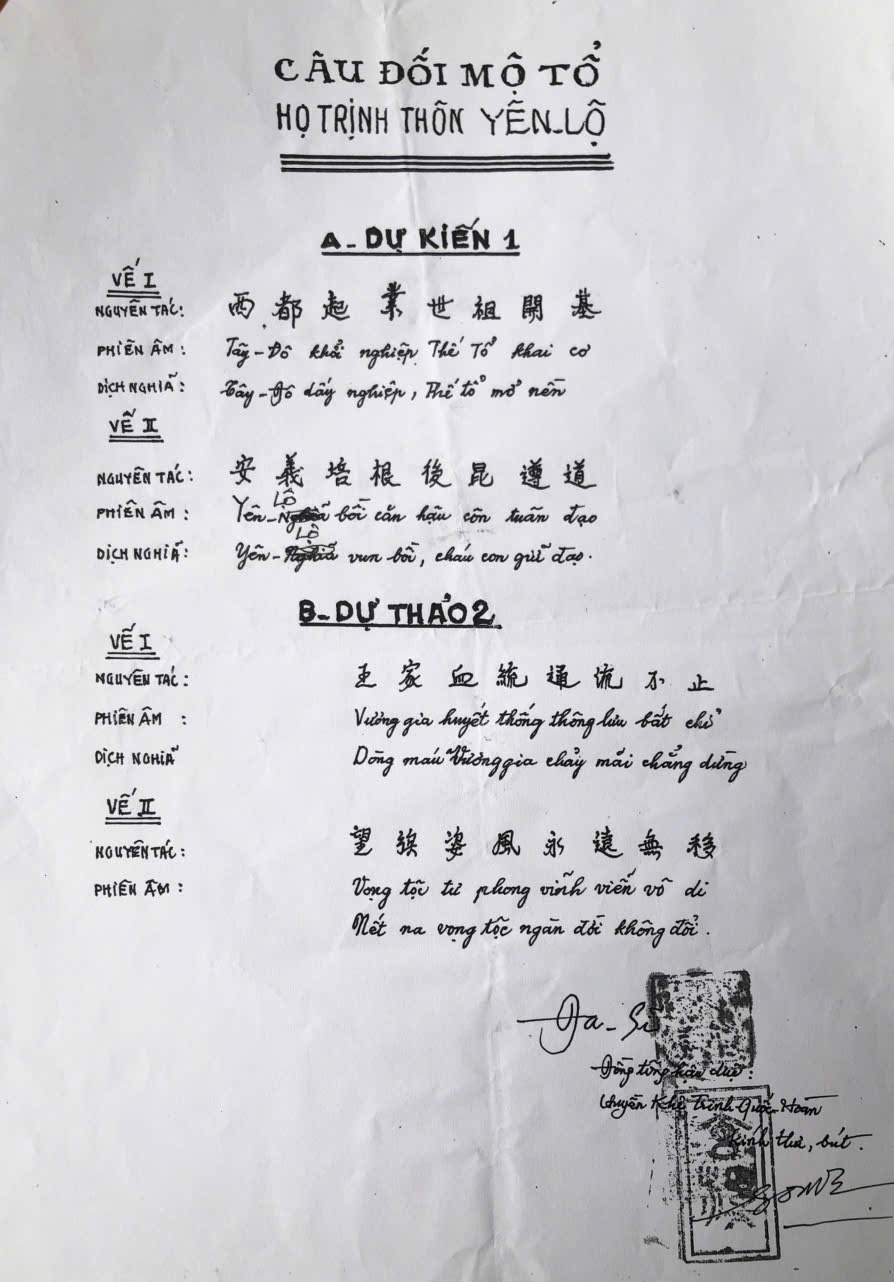 CÂU ĐỐI MỘ TỔ
HỌ TRỊNH THÔN YÊN-LỘ
A- DỰ KIẾN 1
VẾ I
NGUYÊN TÁC: 西都起業世祖開基
PHIÊN ÂM: Tây-Đô khởi nghiệp Thế Tổ khai cơ
DỊCH NGHĨA: Tây-Đô dấy nghiệp, Thế tổ mở nền
VẾ II
NGUYÊN TÁC: 安義培根後昆遵道
Lộ
PHIÊN ÂM: Yên-Nghĩa bồi căn hậu côn tuân đạo
Lộ
DỊCH NGHĨA: Yên-Nghĩa vun bồi, cháu con giữ đạo.
B-DỰ THẢO 2
VẾ I
NGUYÊN TÁC: 王家血統通流不止
PHIÊN ÂM: Vương gia huyết thống thông lưu bất chỉ
DỊCH NGHĨA Dòng máu Vương gia chảy mãi chẳng dừng
VẾ II
NGUYÊN TÁC: 望族姿風永遠無移
PHIÊN ÂM: Vọng tộc tư phong vĩnh viễn vô di
Nết na vọng tộc ngàn đời không đổi.
Đa-Sĩ
Đồng tông hậu duệ:
Khê Trịnh Quốc-Hoàn
kính thư, bút.